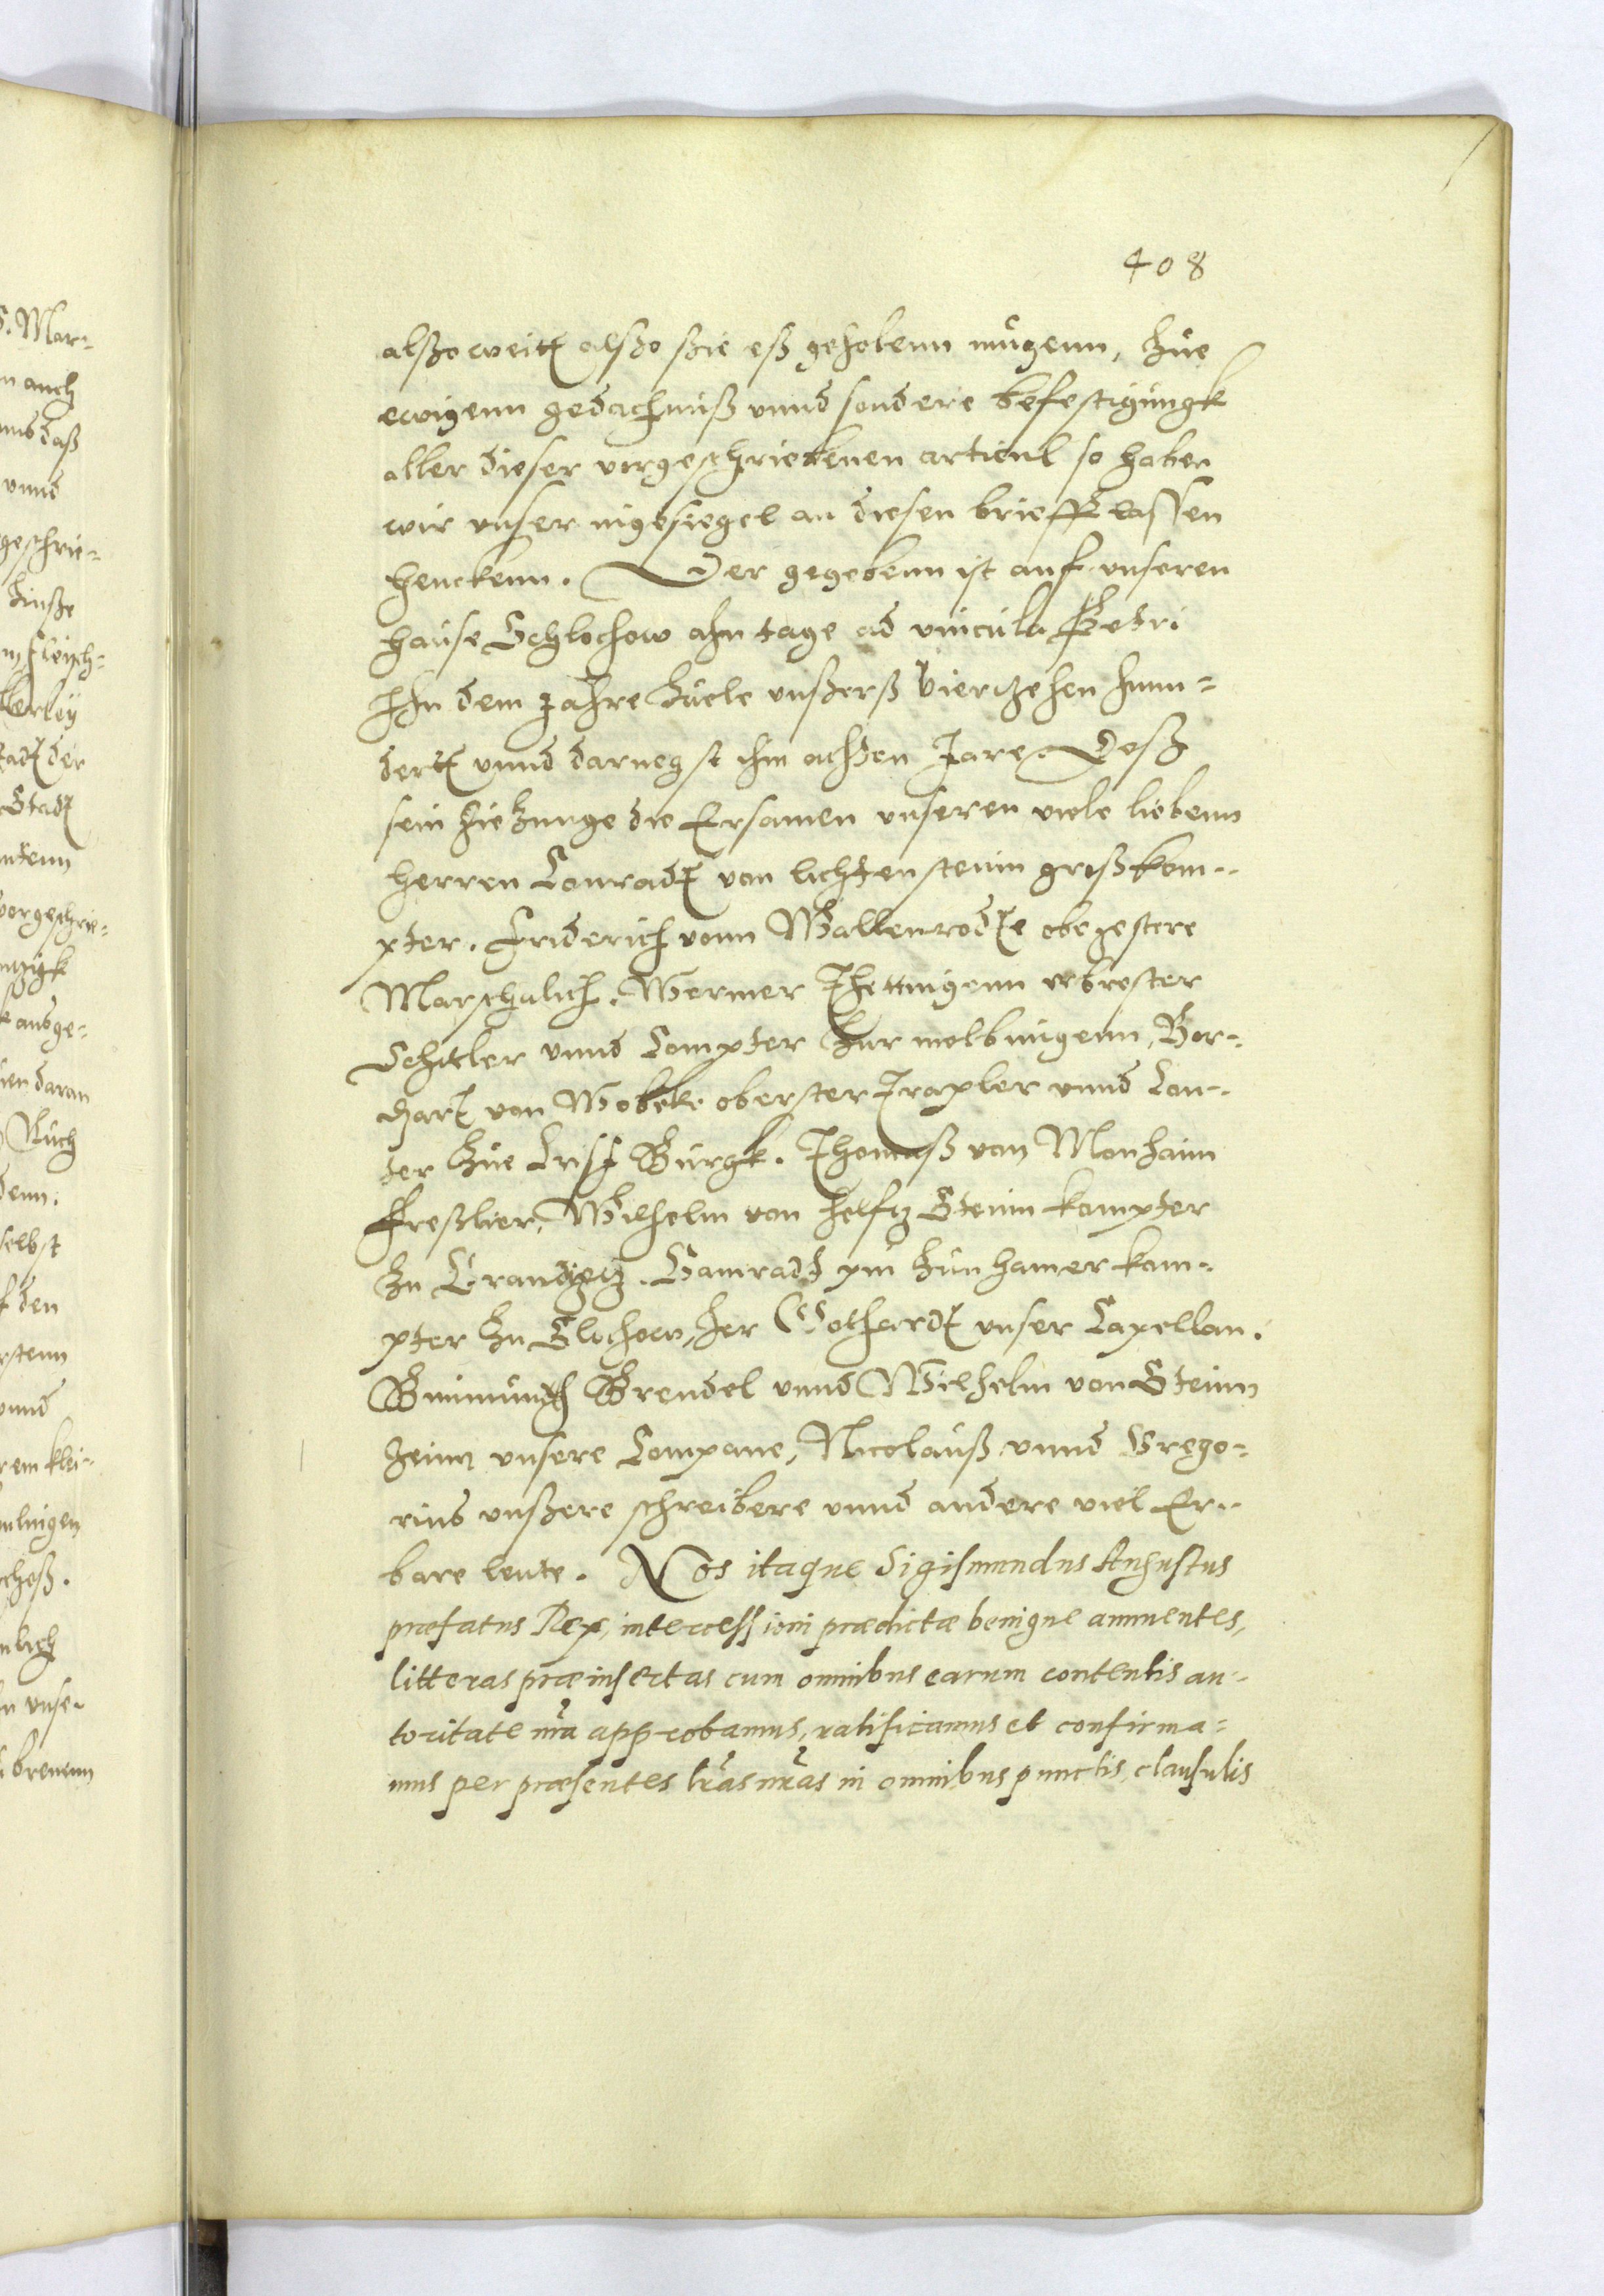 408
alßo weitt alßo ßie eß gehobenn mugenn, Zue
ewigenn gedachnuß vnnd sondere befestigungk
aller dieser vorgeschriebenen articul so haben
wir vnser ingesiegel an diesen brieff lassen
henckenn. Der gegebenn ist auf vnseren
hause Schlochow ahm tage ad vincula Petri
Ihn dem Jahre Zuele vnßerß vierzehen hun=
dertt vnnd darnegst ihm achten Jare Deß
sein hie Zeuge die Ersamen vnseren viele liebenn
herren Conradt von lichtensteinn großkom=
pter. Friderich vonn Wallenrodte obegestere
Marschalich. Werner Thettingenn vbrester
Schitler vnnd Compter Zur melbingenn, Bor=
chart von Wobeke oberster Trapler vnnd Con=
ter Zue Crist Burgk. Thomaß von Monhaim
Freßlier, Wilhelm von Helftz Steinn kompter
Zu Graudgetz. Conradt von Zun hamer kom=
pter Zu Slochow, Her Gothardt vnser Capellan.
Brendel vnnd Wilhelm von Steinn
heim vnsere Compane, Nicolauß vnnd Grego=
rius vnßere schreibere vnnd andere viel Er=
bare leute. Nos itaque Sigismundus Augustus
præfatus Rex, intercessioni prædictæ benigne annuentes,
litteras præinsertas cum omnibus earum contentis au=
toritate nrã approbamus, ratificamus et confirma=
mus per præsentes lrãs nrãs in omnibus punctis, clausulis
S. Mar=
n auch
vnnd
geschrie=
Zinße
Fleisch=
Stadt
vorgeschrie=
ausge=
ien daran
Ruch
denn.
selbst
f den
vnnd
rem klei=
n vnse=